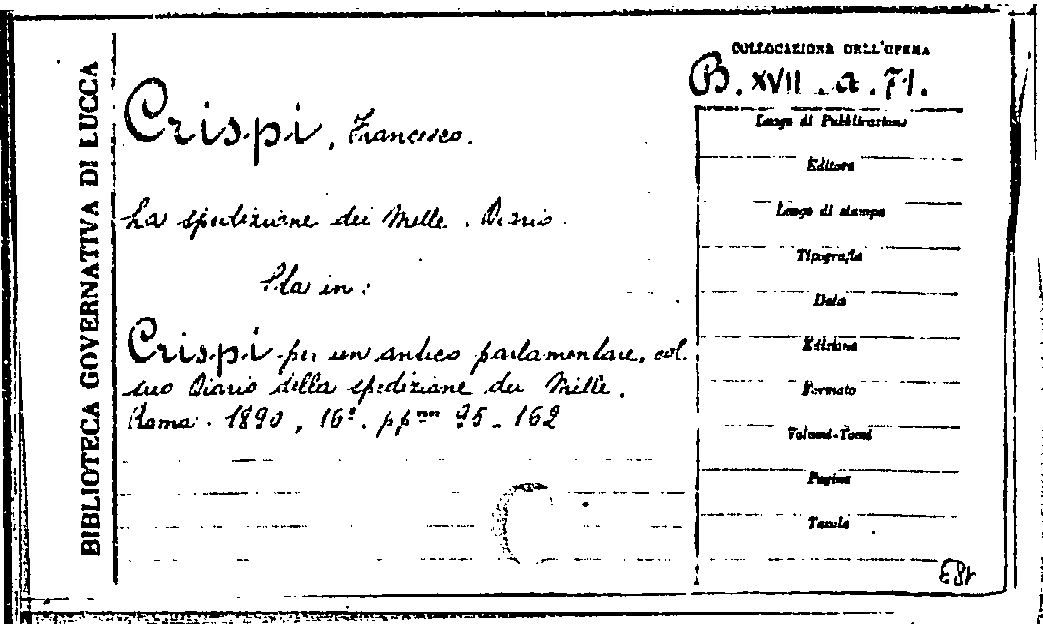 BIBLIOTECA GOVERNATIVA DI LUCCA
COLLOCAZIONE DELL'OPERA
B. XVII. a. 71.
Crispi, Francesco.
La spedizione dei Mille. Diario.
Sta in:
Crispi per un antico parlamentare, col
suo Diario della spedizione dei Mille.
Roma. 1890, 16°. pp 95-162
Luogo di Pubblicazione
Editore
Luogo di stampa
Tipografia
Data
Edizione
Formato
Volumi-Tomi
Pagine
Tavole